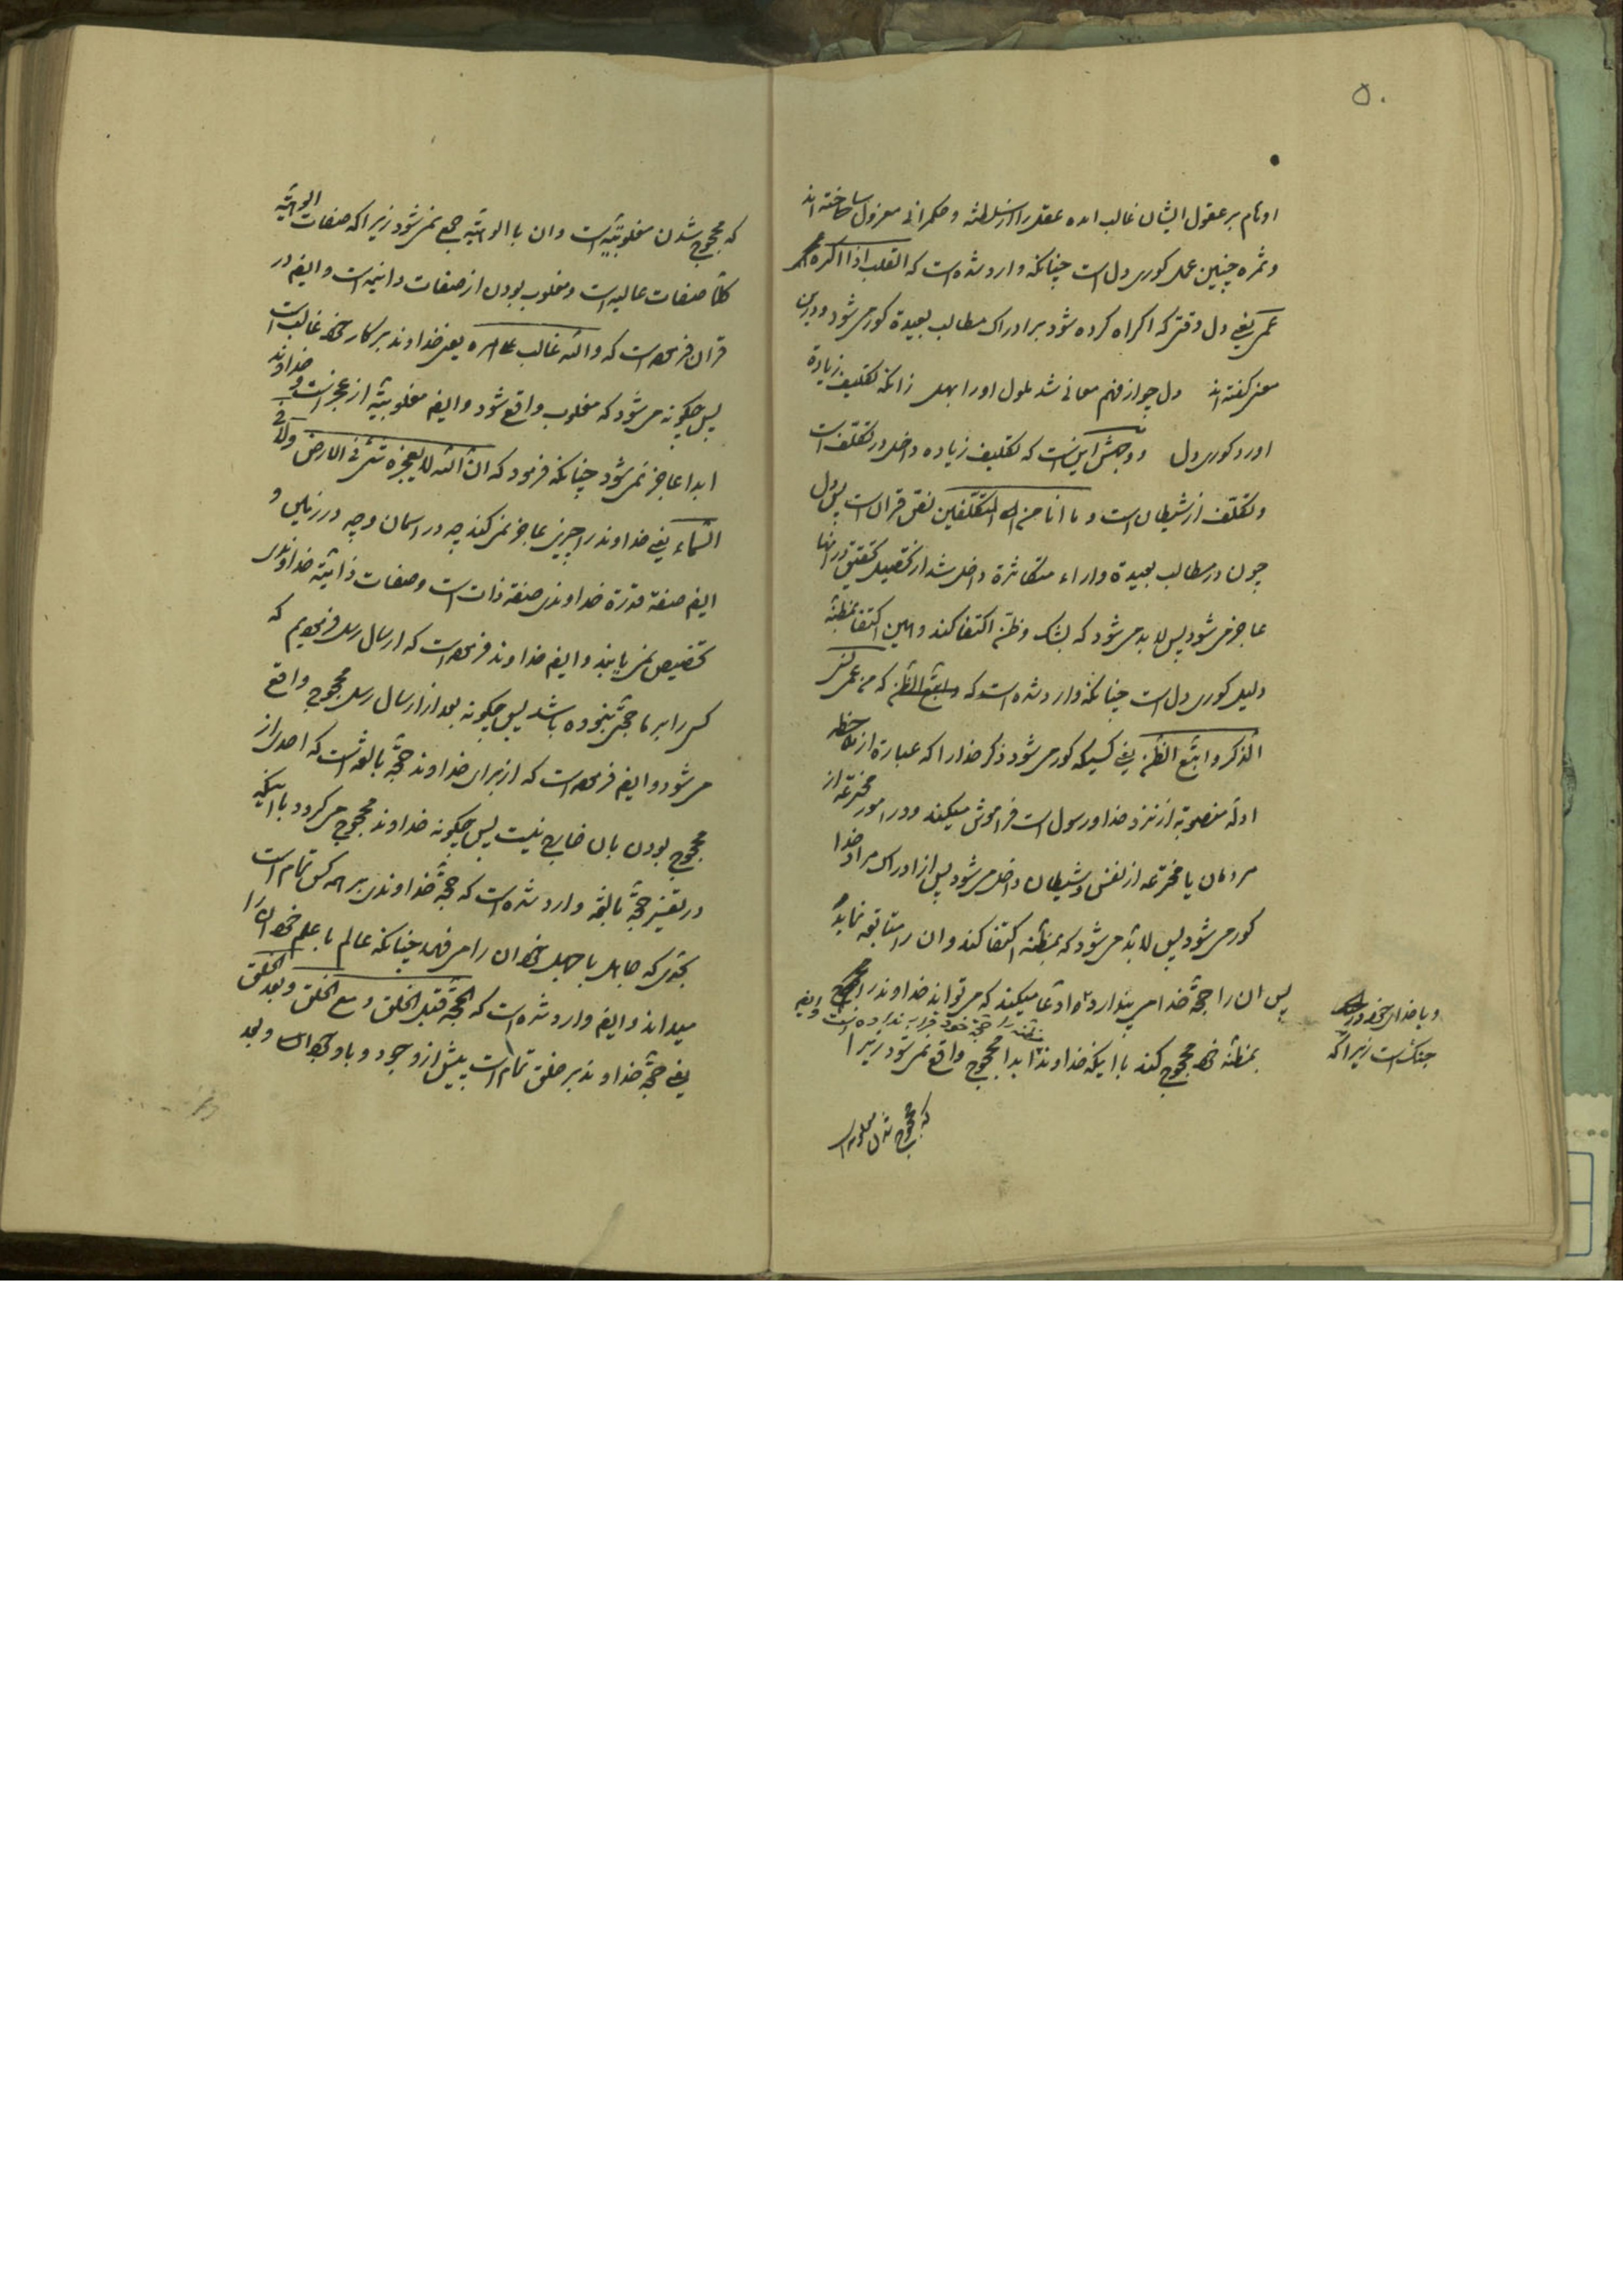 ۵۰
اوهام بر عقول ایشان غالب امده عقل را از سلطنه و حکمرانی معزول ساخته اند
و ثمره چنین عمل کوری دل است چنانکه وارد شده است که القلب اذا اکره
عمی یعنی دل وقتی که اکراه کرده شود بر ادراک مطالب بعیدة کور می شود و درین
معنی گفته اند دل چو از فهم معانی شد ملول او را بهل زانکه تکلیف زیادة
اورد کوری دل و وجهش این است که تکلیف زیاده داخل در تکلف است
و تکلف از شیطان است و ما انا من المتکلفین نص قران است پس دل
چون در مطالب بعیدة واراء متکاثرة داخل شد از تحصیل تحقیق در انها
عاجز می شود پس لابد می شود که بشک و ظن اکتفا کند و همین اکتفا بمظنه
دلیل کوری دل است چنانکه وارد شده است که من عمی نسی
الذکر و اتبع الظن یعنی کسیکه کور می شود ذکر خدا را که عبارة از ملاحظه
ادله منصوبه از نزد خدا و رسول است فراموش میکند و در امور مخترعه از
مردمان یا مخترعه از نفس و شیطان داخل می شود پس از ادراک مراد خدا
کور می شود پس لابد می شود که بمظنه اکتفا کند و ان را متابعه نماید
پس ان را حجة خدا می پندارد و ادعا میکند که می تواند خداوند را
بمظنه خود محجوج کند با اینکه خداوند ابدا محجوج واقع نمی شود زیرا
و با خدای خود در
جنک است زیرا که
که محجوج شدن مغلوبیة است
که محجوج شدن مغلوبیة است وان با الوهیة جمع نمی شود زیرا که صفات الوهیة
کلا صفات عالیه است و مغلوب بودن از صفات دانیه است و ایضا در
قران فرموده است که والله غالب علی امره یعنی خداوند بر کار خود غالب است
پس چکونه می شود که مغلوب واقع شود و ایضا مغلوبیة از عجز است و خداوند
ابدا عاجز نمی شود چنانکه فرمود که ان الله لا یعجزه شئ فی الارض ولا فی
السماء یعنی خداوند را چیزی عاجز نمی کند چه در اسمان و چه در زمین و
ایضا صفة قدرة خداوندی صفة ذات است و صفات ذاتیة خداوندی
تخصیص نمی یابند و ایضا خداوند فرموده است که ارسال رسل فرمودیم که
کسی را بر ما حجتی نبوده باشد پس چکونه بعد از ارسال رسل محجوج واقع
می شود و ایضا فرموده است که از برای خداوند حجة بالغه است که احدی از
محجوج بودن بان خارج نیست پس چکونه خداوند محجوج می کردد با اینکه
در تفسیر حجة بالغه وارد شده است که حجة خداوندی بر همه کس تمام است
بحدی که جاهل با جهل خود ان را می فهمد چنانکه عالم با علم خود ان را
میداند و ایضا وارد شده است که الحجة قبل الخلق و مع الخلق و بعد الخلق
یعنی حجة خداوند بر خلق تمام است پیش از وجود و با وجود ان و بعد